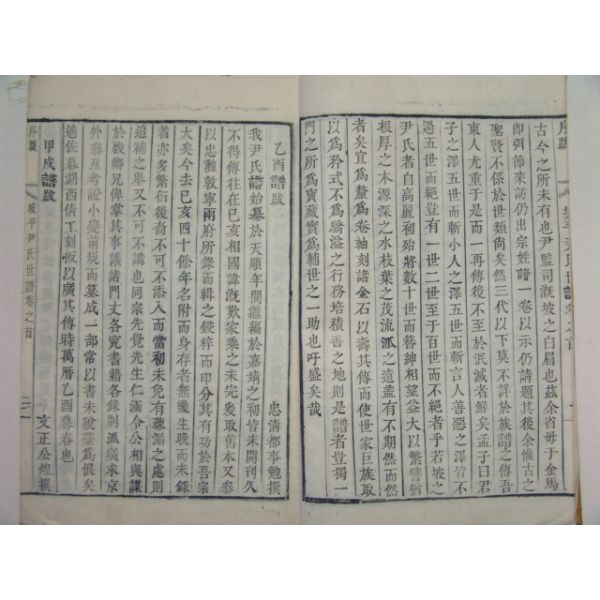 序跋
坡平尹氏世譜卷之首
古今之所未有也尹監司漑坡之白眉也茲余省毋于金馬
卽弭節來訪仍出宗姓譜一卷以示仍請題其後余惟古之
聖賢不係於世類尙矣然三代以下莫不詳於族譜之傳吾
東人尤重于是而一再傳後不至於泯滅者鮮矣孟子曰君
子之澤五世而斬小人之澤五世而斬言人善惡之澤皆不
過五世而絕豈有一世二世至于百世而不絕者乎若坡之
尹氏者自高麗初殆將數十世而簪紳相望益大以繁譬猶
根厚之木源深之水枝葉之茂流派之遠盖有不期然而然
者矣宜其爲釐爲卷袖刻諸金石以壽其傳而使世家巨族取
以爲矜式不爲驕溢之行務培積善之地則是譜者豈獨一
門之所爲寶藏實爲輔世之一助也吁盛矣哉
乙酉譜跋 忠淸都事勉撰
我尹氏譜始纂於天順年間繼編於嘉靖之初皆未開刊久
不得傳往在己亥相國諱漑歎家乘之未完爰取舊本又叅
以忠勳敦寧兩府所錄而輯之鋟梓而印分其有功於吾宗
大矣今去己亥四十餘年名附而身存者無幾生晚而未錄
者亦多繁衍後裔不可不添入而當初未免有疎漏之處則
追補之舉又不可不講也同宗先覺先生仁涵令公相與謀
於殷卿兄俾掌其事議諸門丈各究書籍各錄別派廣求京
外叅互考證小變前規而纂成一部常以書未脫藁爲恨矣
適佐幕湖西倩工刻板以廣其傳時萬曆乙酉暮春也
甲戌譜跋 文正公煌撰
序跋
坡平尹氏世譜卷之首
二